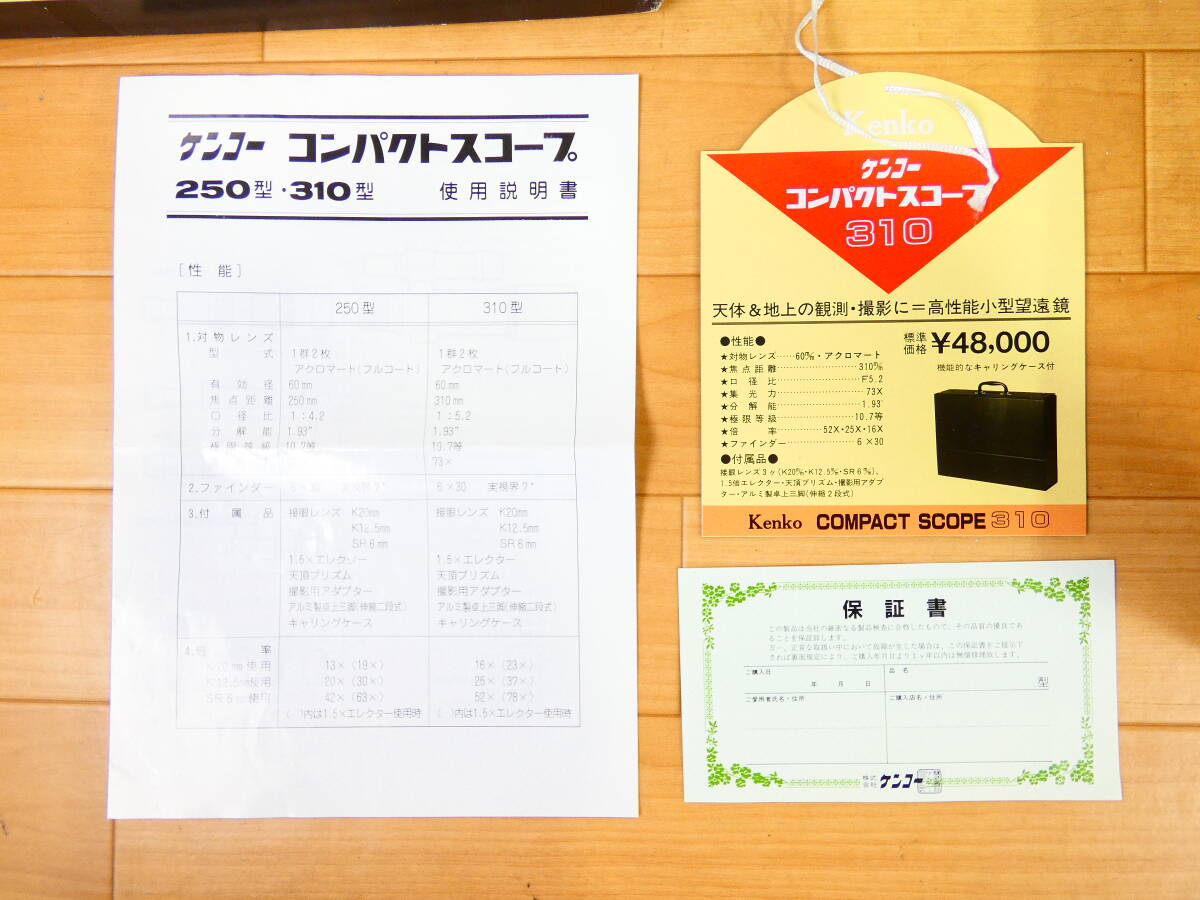 ケンコー コンパクトスコープ
250型・310型 使用説明書
[性 能]
250型 310型
1.対物レンズ
型 式 1群2枚 1群2枚
アクロマート(フルコート) アクロマート(フルコート)
有 効 径 60mm 60mm
焦 点 距 離 250mm 310mm
口 径 比 1:4.2 1:5.2
分 解 能 1.93″ 1.93″
極 限 等 級 10.7等 10.7等
73×
2.ファインダー 6×30 実視界7° 6×30 実視界7°
3.付 属 品 接眼レンズ K20mm 接眼レンズ K20mm
K12.5mm K12.5mm
SR6mm SR6mm
1.5×エレクター 1.5×エレクター
天頂プリズム 天頂プリズム
撮影用アダプター 撮影用アダプター
アルミ製卓上三脚(伸縮二段式) アルミ製卓上三脚(伸縮二段式)
キャリングケース キャリングケース
4.倍 率
K20mm使用 13×(19×) 16×(23×)
K12.5mm使用 20×(30×) 25×(37×)
SR6mm使用 42×(63×) 52×(78×)
( )内は1.5×エレクター使用時 ( )内は1.5×エレクター使用時
Kenko
ケンコー
コンパクトスコープ
310
天体&地上の観測・撮影に=高性能小型望遠鏡
●性能●
★対物レンズ……60m/m・アクロマート
★焦点距離……………………310m/m
★口径比……………………F5.2
★集光力……………………73X
★分解能……………………1.93″
★極限等級…………………10.7等
★倍率…………52X・25X・16X
★ファインダー……………6×30
●付属品●
接眼レンズ3ヶ(K20m/m・K12.5m/m・SR6m/m)、
1.5倍エレクター・天頂プリズム・撮影用アダプ
ター・アルミ製卓上三脚(伸縮2段式)
標準価格 ¥48,000
機能的なキャリングケース付
Kenko COMPACT SCOPE 310
保証書
この製品は当社の厳密なる製品検査に合格したもので、その品質の優良であ
ることを保証致します。
万一、正常な取扱い中において故障が生じた場合は、この保証書をご提示下
されば裏面規定により、ご購入年月日より1ヶ年以内は無償修理致します。
ご購入日 品 名
年 月 日
ご愛用者氏名・住所 ご購入店名・住所
株式会社 ケンコー